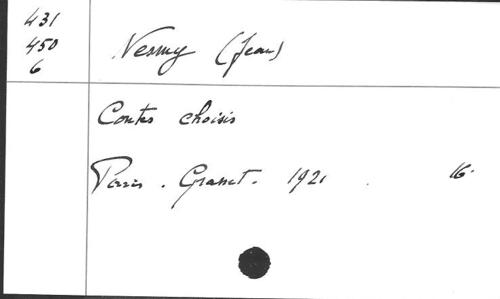 431
450
6
Nesmy (Jean)
Contes choisis
Paris. Grasset. 1921. 16.